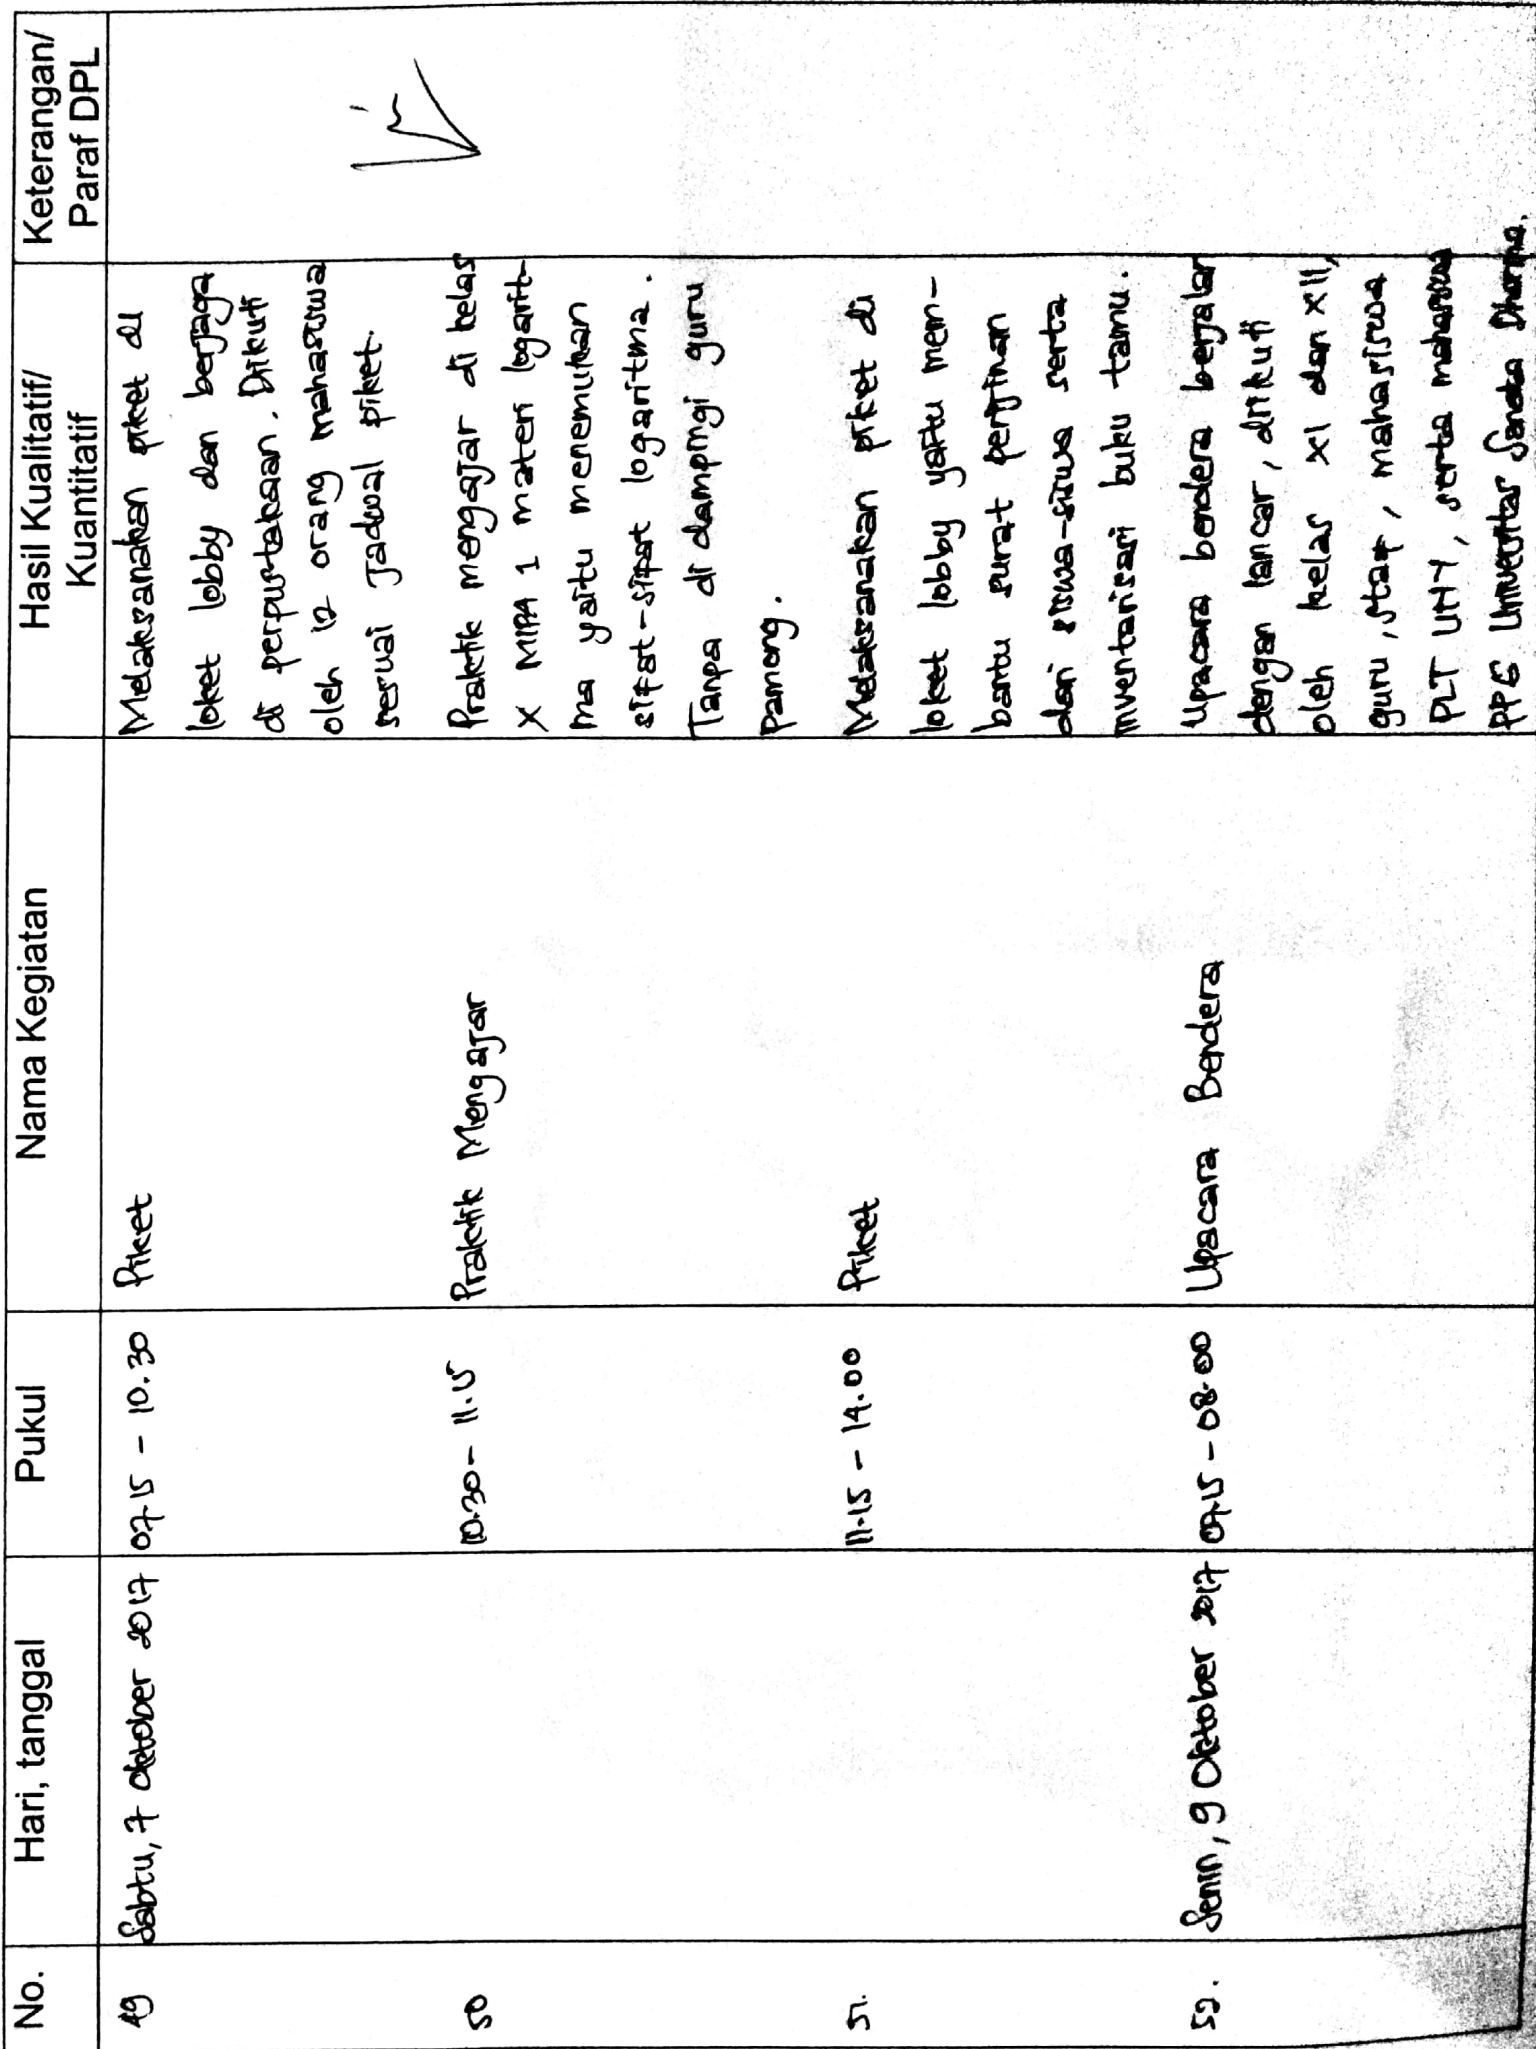 No.
Hari, tanggal
Pukul
Nama Kegiatan
Hasil Kualitatif/
Kuantitatif
Keterangan/
Paraf DPL
49
Sabtu, 7 Oktober 2017
07.15 - 10.30
Piket
Melaksanakan piket di
loket lobby dan berjaga
di perpustakaan. Diikuti
oleh 12 orang mahasiswa
sesuai jadwal piket.
50
10.30 - 11.15
Praktik Mengajar
Praktik mengajar di kelas
X MIPA 1 materi logarit-
ma yaitu menemukan
sifat-sifat logaritma.
Tanpa di dampingi guru
pamong.
51.
11.15 - 14.00
Piket
Melaksanakan piket di
loket lobby yaitu mem-
bantu surat perijinan
dari siswa-siswa serta
inventarisasi buku tamu.
52.
Senin, 9 Oktober 2017
07.15 - 08.00
Upacara Bendera
Upacara bendera berjalan
dengan lancar, diikuti
oleh kelas XI dan XII,
guru, staf, mahasiswa
PLT UNY, serta mahasiswa
PPG Universitas Sanata Dharma.